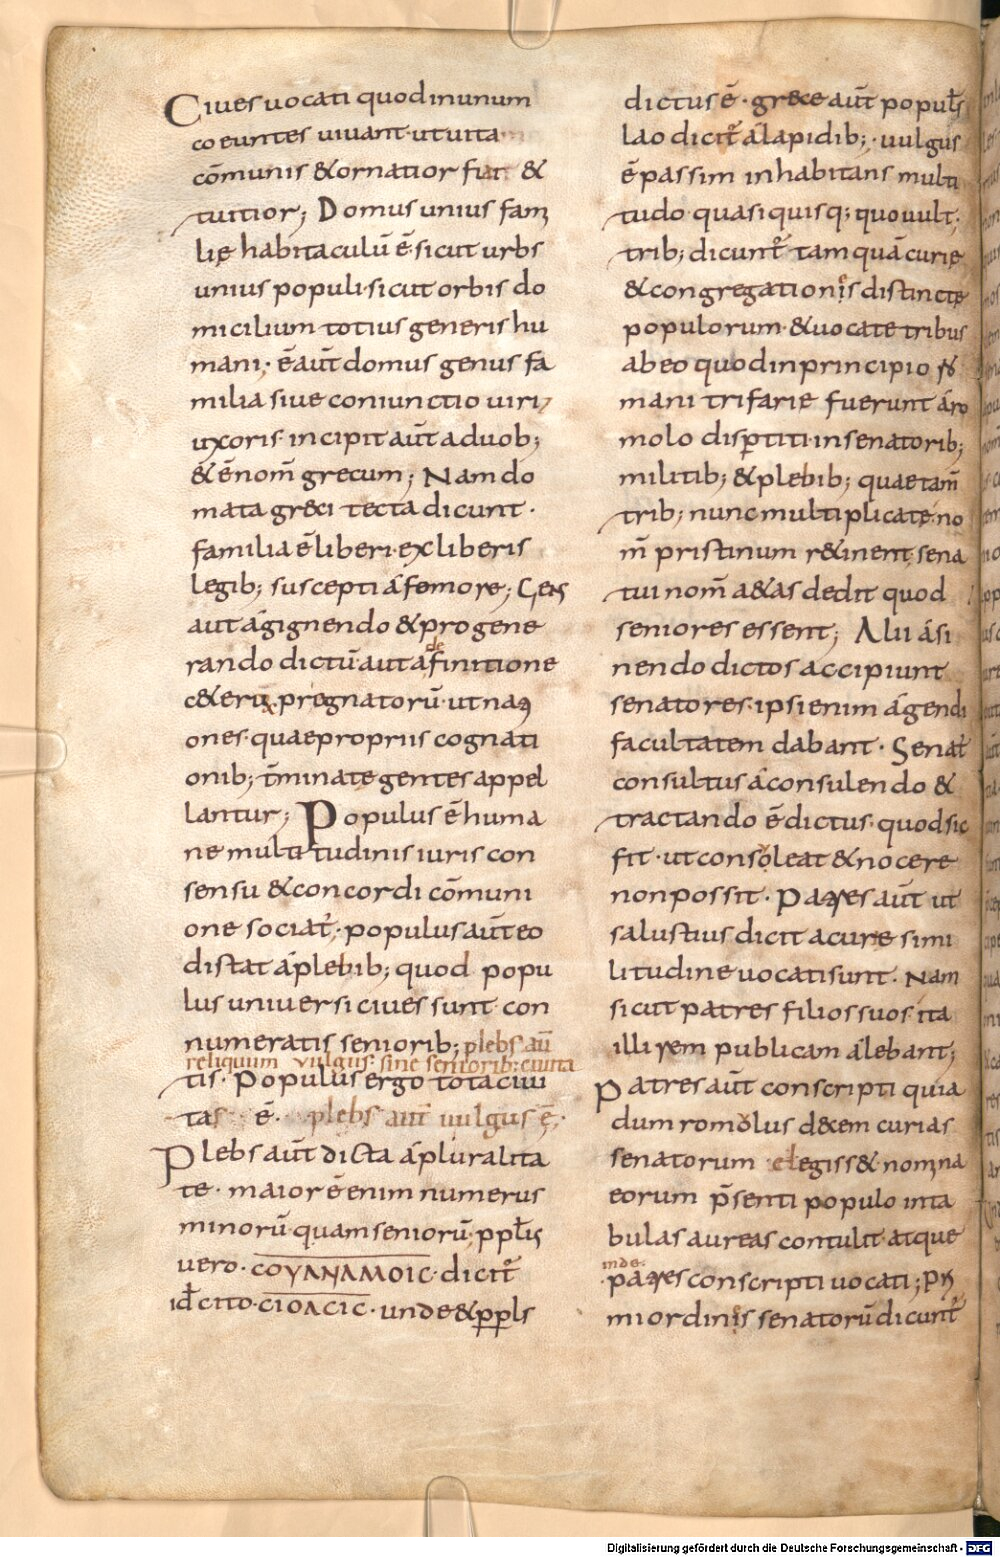 Ciues uocati quod inunum
coeuntes uiuant· ut uita
cōmunis &ornatior fiat &
tuitior; Domus unius fam
lię habitaculū ē· sicut urbs
unius populi· sicut orbis do
micilium totius generis hu
mani· ē aūt domus genus fa
milia siue coniunctio uiri,
uxoris· incipit aūt a duob;
& ē nom̄ grecum; Nam do
mata greci tecta dicunt·
familia ē liberi· ex liberis
legib; suscepti á femore; Gens
aut á gignendo & progene
de
rando dictū· aut á finitione
c&erū pregnatorū· ut na
ones· quae propriis cognati
onib; t̄minate gentes appel
lantur; Populus ē huma
ne multitudinis iuris con
sensu & concordi cōmuni
one sociat̄· populus aūt eo
distat á plebib; quod popu
lus uniuersi ciues sunt con
numeratis seniorib; plebs aū
reliquum uulgus· sine seniorib; ciuita
tis· Populus ergo tota ciui
tas ē· plebs aut̄ uulgus ē·
Plebs aūt dicta á pluralita
te· maior ē enim numerus
minorū· quam seniorū; ppl̄is
uero· COYANAMOIC· dicit̄
id̄ cito· CIOΛCIC· unde & ppls
dictus ē· grece aūt popul̄s
lao dicit̄ á lapidib;· uulgus
ē passim inhabitans multi
tudo· quasi quisq; quo uult;
trib; dicunt̄ tam quā curię
& congregationis distincte
populorum· & uocate tribus
ab eo quod inprincipio ro
mani trifarie fuerunt á ro
molo disptiti· in senatorib;
militib; & plebib; quae tam̄
trib; nunc multiplicate· no
m̄ pristinum r&inent; sena
tui nom̄ a&as dedit quod
seniores essent; Alii á si
nendo dictos accipiunt
senatores· ipsi enim ágendi
facultatem dabant· Senat̄
consultus á consulendo &
tractando ē dictus· quod sic
fit· ut consoleat & nocere
non possit· Patres aūt ut
salustius dicit a cure simi
litudine uocati sunt· Nam
sicut patres filios suos ita
illi rem publicam álebant;
Patres aūt conscripti quia
dum romolus decem curias
senatorum elegiss& nomina
eorum p̄senti populo inta
bulas aureas contulit atque
inde·
patres conscripti uocati; Pri
mi ordinis senatorū dicunt̄
Digitalisierung gefördert durch die Deutsche Forschungsgemeinschaft - DFG